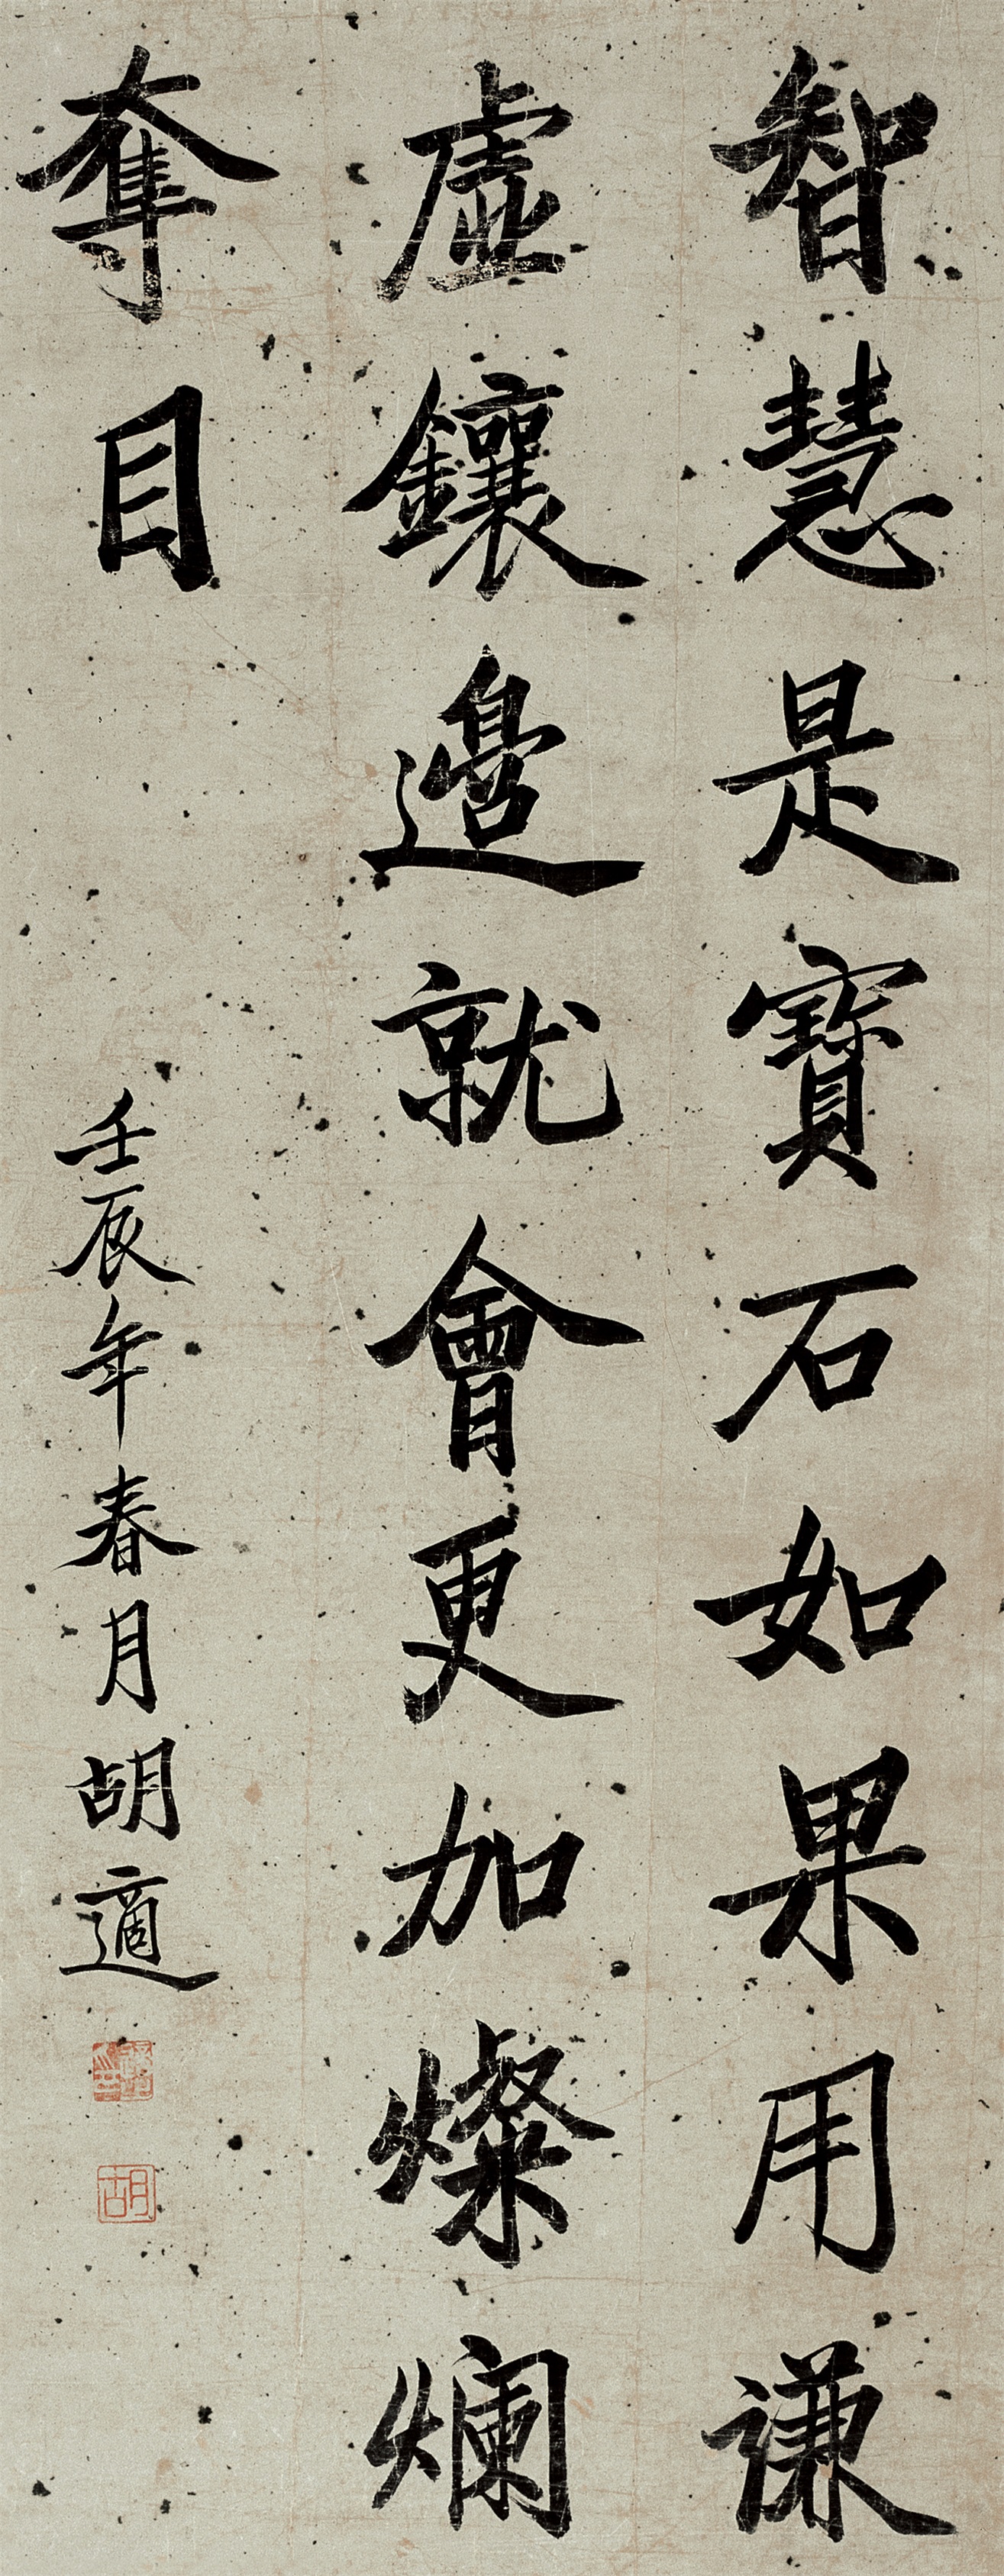 智慧是寶石如果用謙
虛鑲邊就會更加燦爛
奪目
壬辰年春月胡適
胡